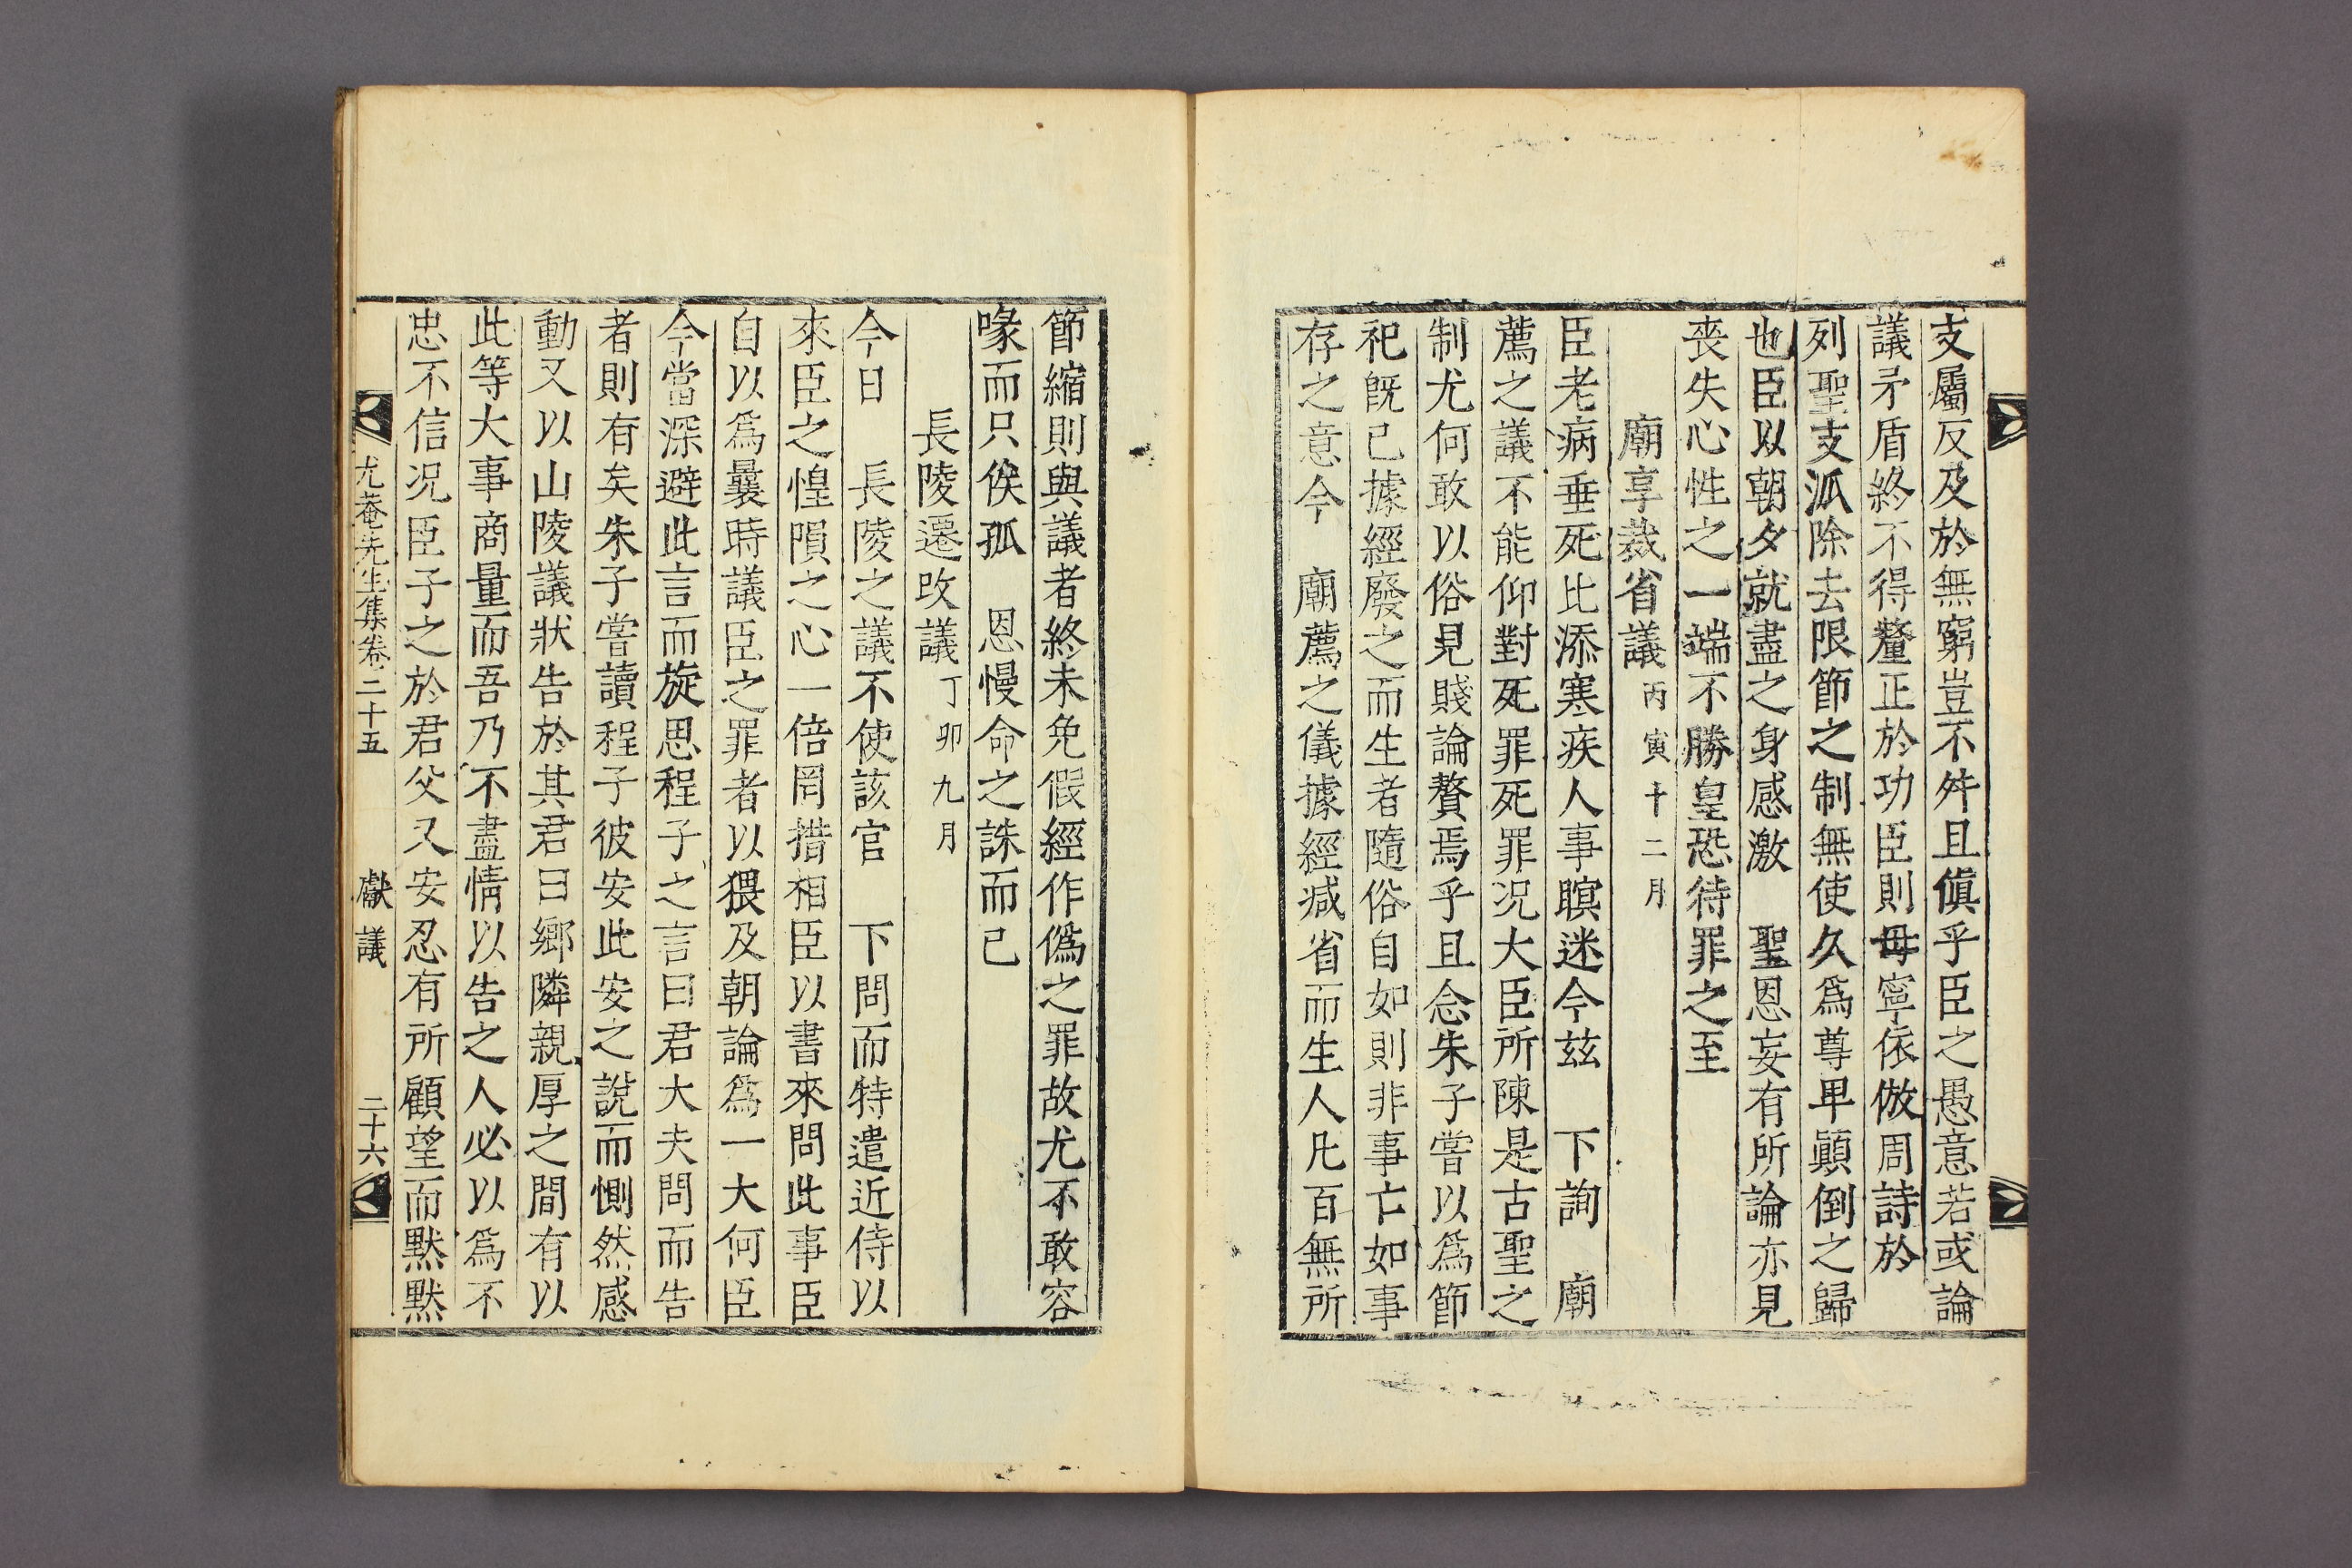 支屬反及於無窮豈不舛且傎乎臣之愚意若或論
議矛盾終不得釐正於功臣則毋寧依倣周詩於
列聖支派除去限節之制無使久爲尊卑顚倒之歸
也臣以朝夕就盡之身感激　聖恩妄有所論亦見
喪失心性之一端不勝皇恐待罪之至
廟享裁省議丙寅十二月
臣老病垂死比添寒疾人事瞑迷今玆　下詢　廟
薦之議不能仰對死罪死罪况大臣所陳是古聖之
制尤何敢以俗見賤論贅焉乎且念朱子嘗以爲節
祀旣已據經廢之而生者隨俗自如則非事亡如事
存之意今　廟薦之儀據經减省而生人凡百無所
節縮則與議者終未免假經作僞之罪故尤不敢容
喙而只俟孤　恩慢命之誅而已
長陵遷改議丁卯九月
今日　長陵之議不使該官　下問而特遣近侍以
來臣之惶隕之心一倍罔措相臣以書來問此事臣
自以爲曩時議臣之罪者以猥及朝論爲一大何臣
今當深避此言而旋思程子之言曰君大夫問而告
者則有矣朱子嘗讀程子彼安此安之說而惻然感
動又以山陵議狀告於其君曰鄉隣親厚之間有以
此等大事商量而吾乃不盡情以告之人必以爲不
忠不信况臣子之於君父又安忍有所顧望而默默
尤菴先生集卷二十五　獻議　二十六